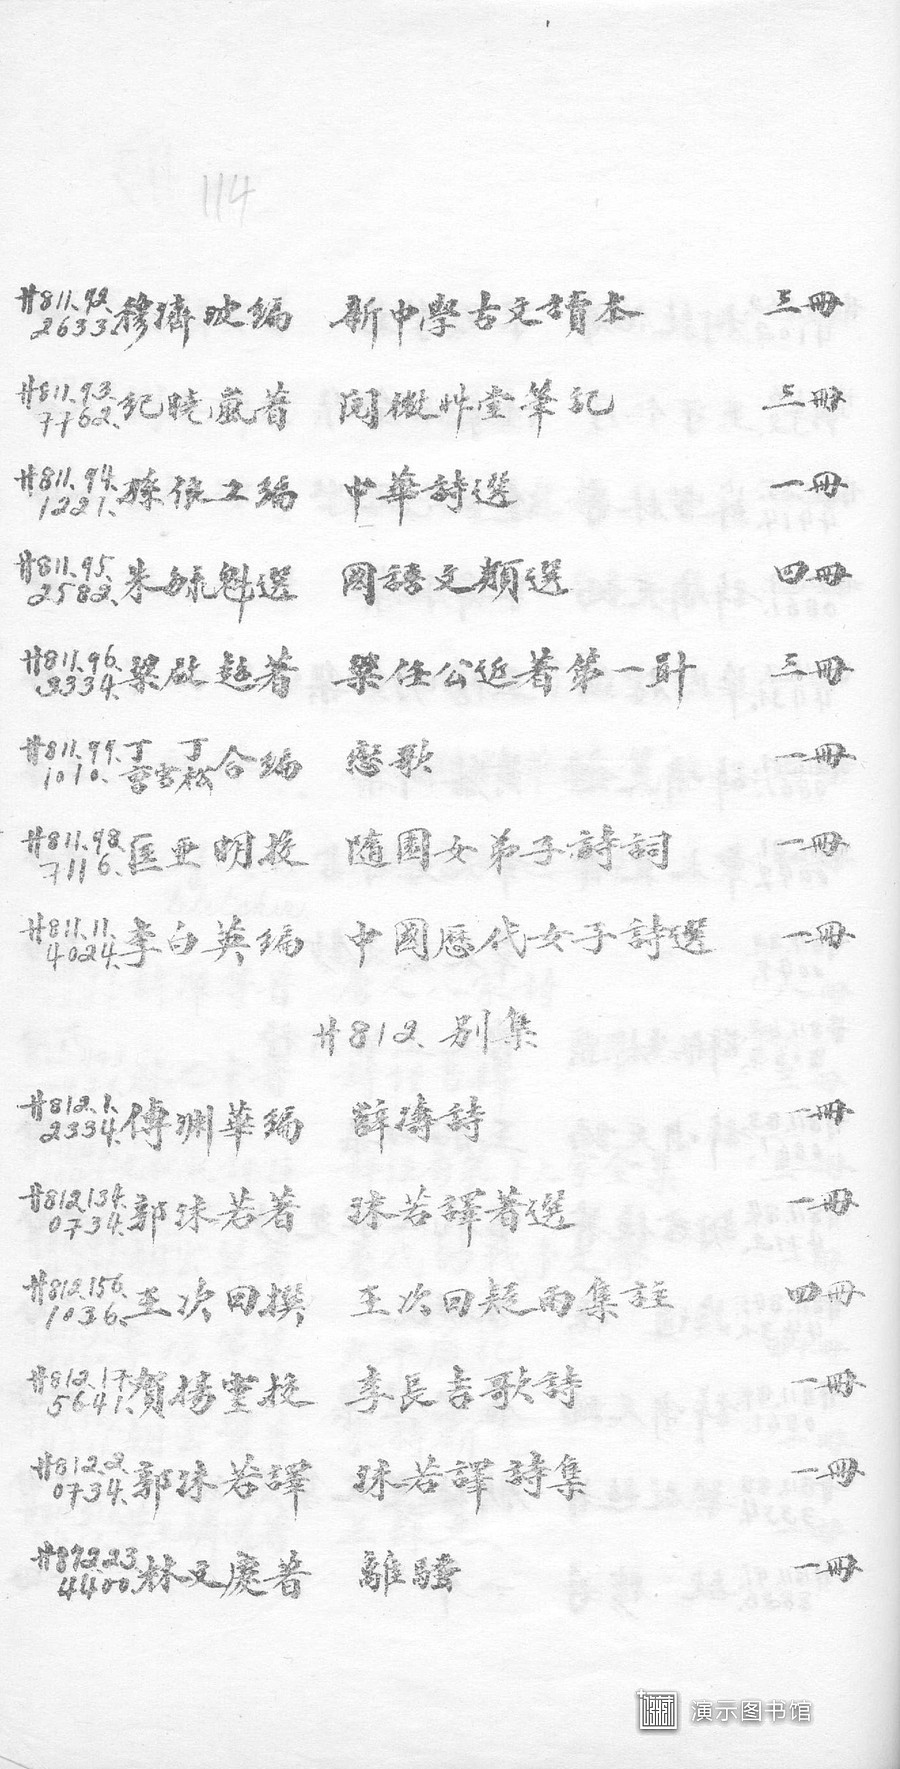 114
廿811.92. 2633. 穆濟波編 新中學古文讀本 三冊
廿811.93. 7762. 紀曉嵐著 閱微艸堂筆記 三冊
廿811.94. 1221. 孫俍工編 中華詩選 一冊
廿811.95. 2582. 朱毓魁選 國語文類選 四冊
廿811.96. 3334. 梁啟超著 梁任公近著第一輯 三冊
廿811.97. 1010. 丁 丁雪松合編 戀歌 一冊
廿811.98. 7116. 匡亞明校 隨園女弟子詩詞 一冊
廿811.11. 4024. 李白英編 中國歷代女子詩選 一冊
廿812. 別集
廿812.1. 2334. 傅潤華編 薛濤詩 一冊
廿812.134. 0734. 郭沫若著 沫若譯著選 一冊
廿812.156. 1036. 王次回撰 王次回疑雨集註 四冊
廿812.17 5641. 賀揚靈校 李長吉歌詩 一冊
廿812.2. 0734. 郭沫若譯 沫若譯詩集 一冊
廿872.23. 4400. 林文慶著 離騷 一冊
演示图书馆